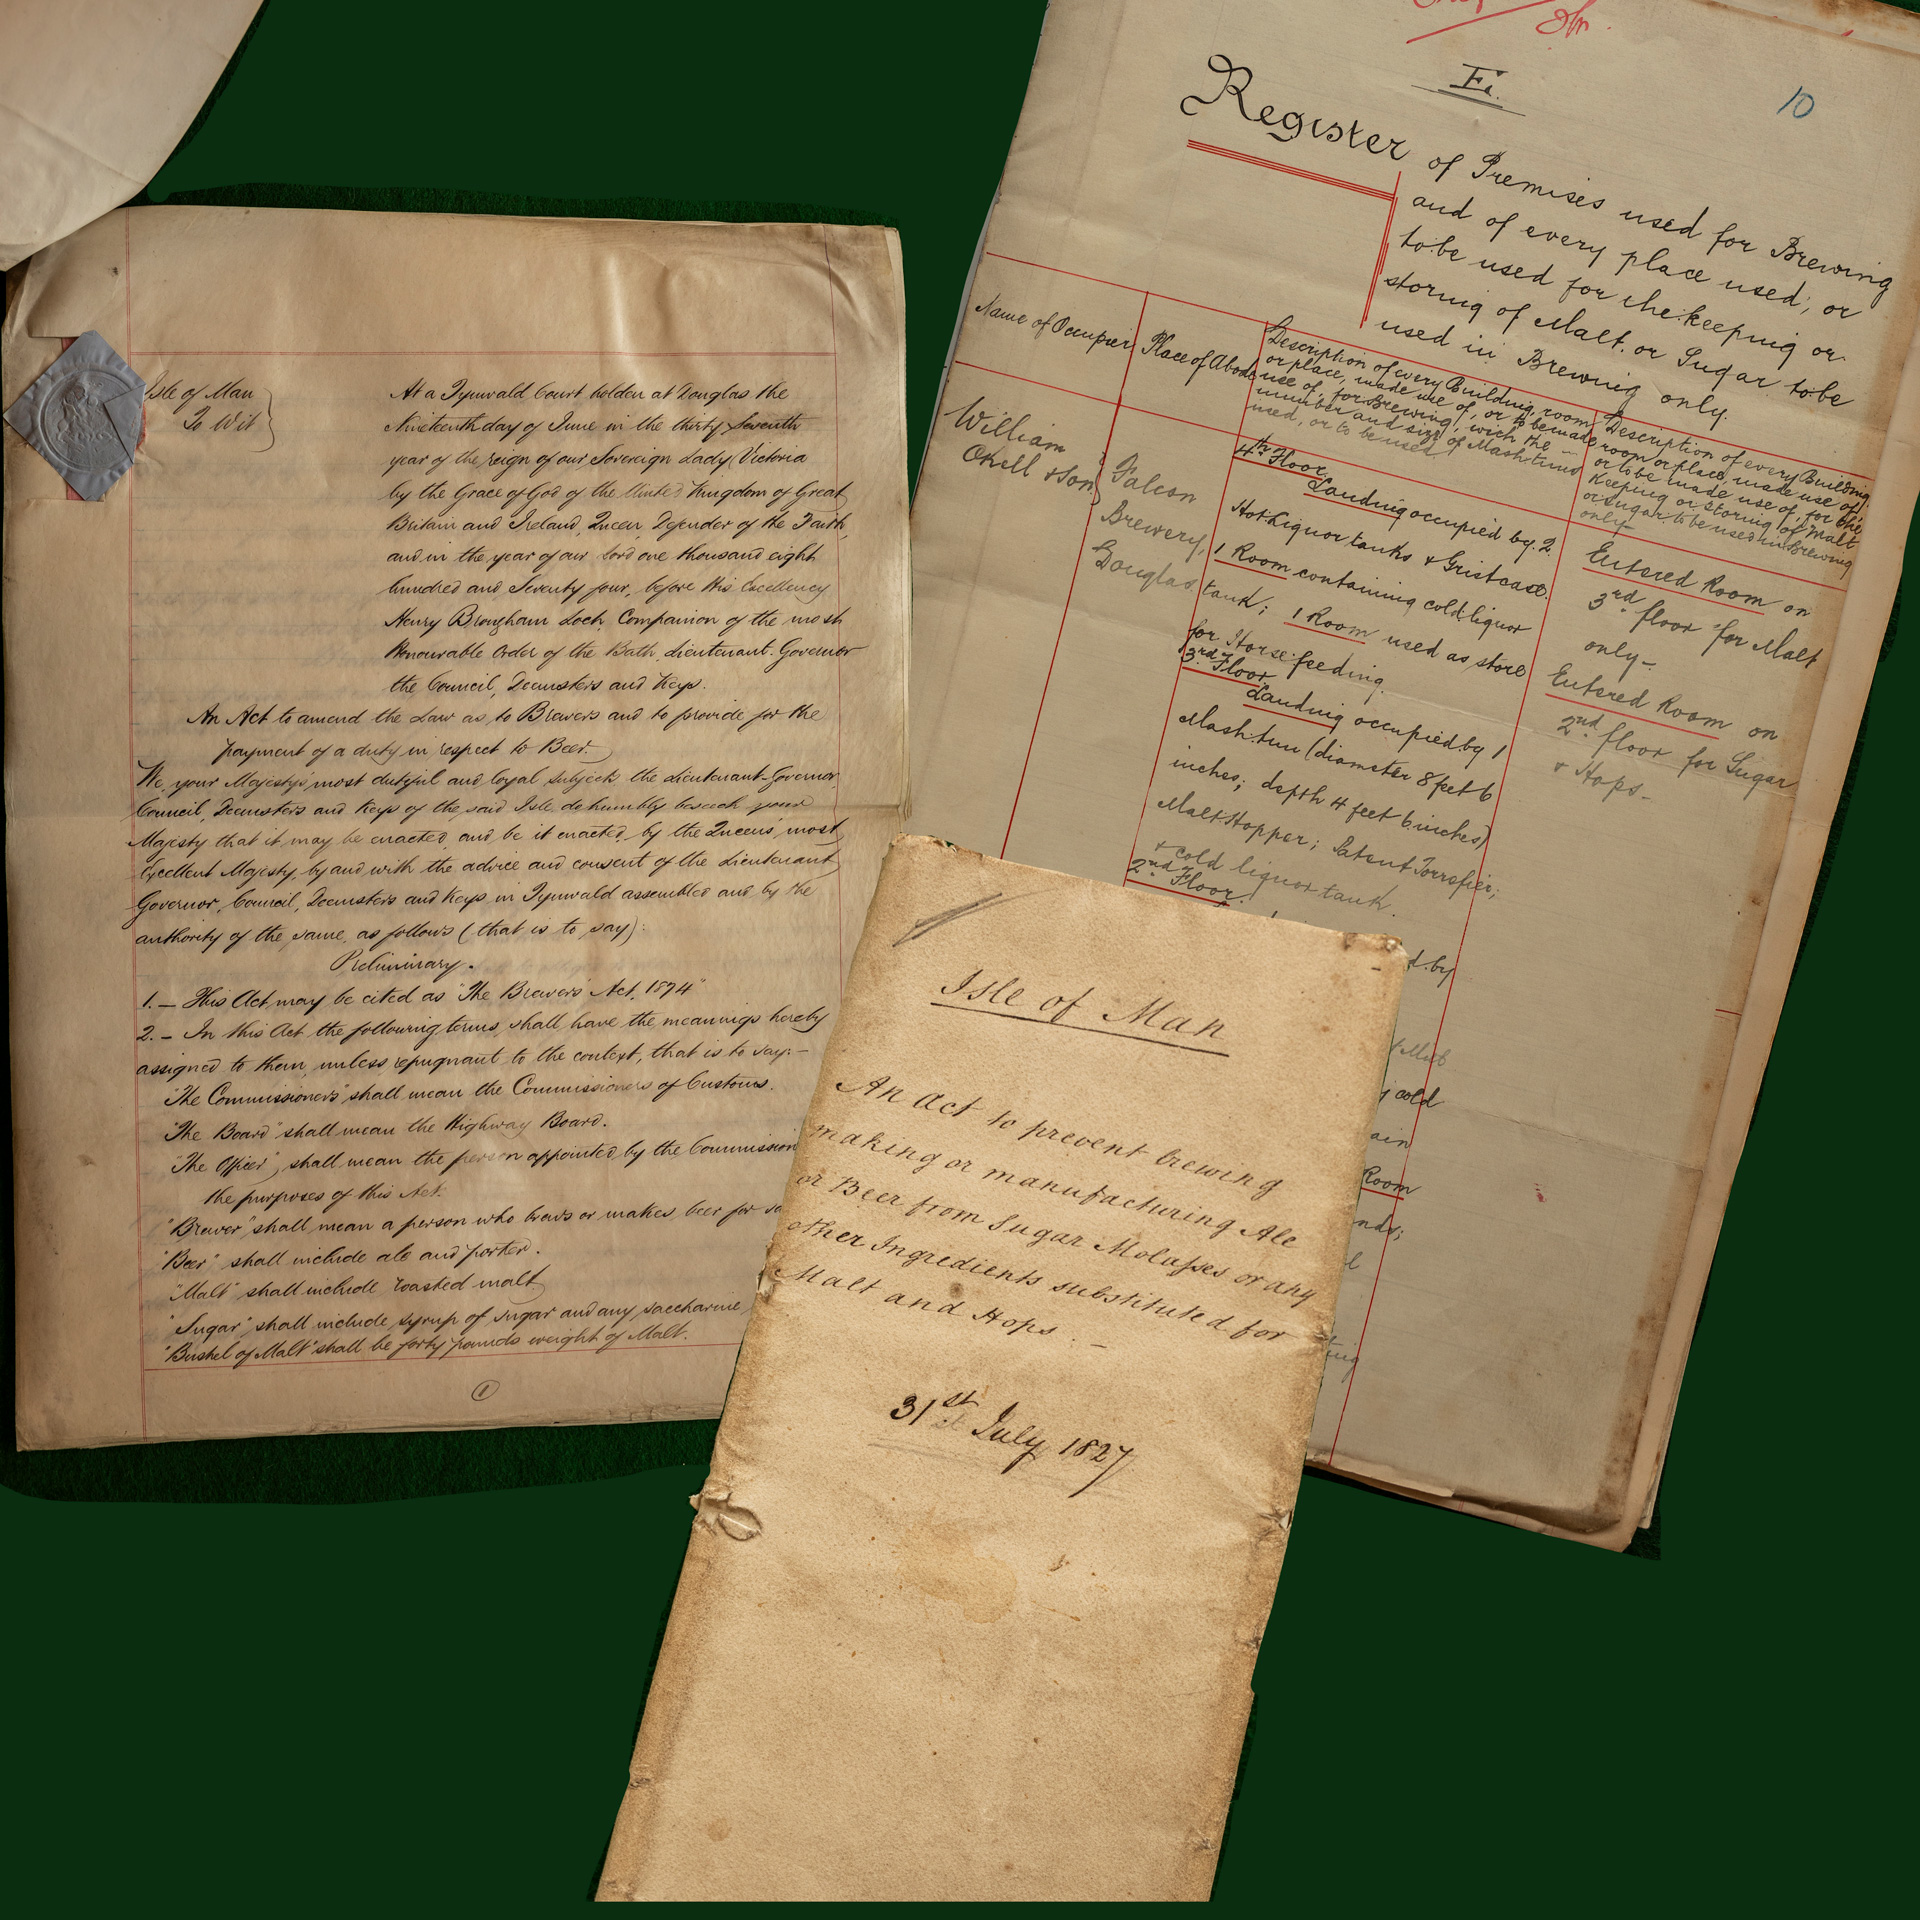 Isle of Man
To Wit
At a Tynwald Court holden at Douglas the
Nineteenth day of June in the thirty Seventh
year of the reign of our Sovereign Lady Victoria
by the Grace of God of the United Kingdom of Great
Britain and Ireland, Queen, Defender of the Faith,
and in the year of our Lord one thousand eight
hundred and Seventy four, before His Excellency
Henry Brougham Loch, Companion of the most
Honourable Order of the Bath, Lieutenant-Governor
the Council, Deemsters and Keys.
An Act to amend the Law as to Brewers and to provide for the
payment of a duty in respect to Beer.
We, your Majesty's most dutiful and loyal subjects the Lieutenant-Governor,
Council, Deemsters and Keys of the said Isle do humbly beseech your
Majesty that it may be enacted, and be it enacted, by the Queen's most
Excellent Majesty, by and with the advice and consent of the Lieutenant
Governor, Council, Deemsters and Keys in Tynwald assembled and by the
authority of the same, as follows (that is to say):
Preliminary.
1. — This Act may be cited as "The Brewers' Act, 1874"
2. — In this Act the following terms, shall have the meanings hereby
assigned to them, unless repugnant to the context, that is to say:—
"The Commissioners" shall mean the Commissioners of Customs.
"The Board" shall mean the Highway Board.
"The Officer", shall mean the person appointed by the Commission
the purposes of this Act.
"Brewer" shall mean a person who brews or makes beer for sa
"Beer" shall include ale and porter.
"Malt" shall include roasted malt
"Sugar" shall include syrup of sugar and any saccharine
"Bushel of Malt" shall be forty pounds weight of Malt.
1
10
Register of Premises used for Brewing
and of every place used, or
to be used for the keeping or
storing of Malt. or Sugar to be
used in Brewing only.
Name of Occupier
Place of Abode
Description of every Building, room
or place, made use of, or to be made
use of, for Brewing, with the —
number and size of Mash tuns
used, or to be used.
Description of every Building
room or place, made use of,
or to be made use of, for the
Keeping or storing of Malt
or Sugar to be used in Brewing
only—
William
Okell & Son
Falcon
Brewery,
Douglas
4th Floor.
Landing occupied by. 2
Hot Liquor tanks & Gristcase.
1 Room containing cold liquor
tank; 1 Room used as store
for Horse feeding.
3rd Floor.
Landing occupied by 1
Mash tun (diameter 8 feet 6
inches; depth 4 feet 6 inches)
Malt Hopper; Patent Torrefier;
& cold liquor tank.
2nd Floor.
d by
y cold
ain
Room
nds;
Entered Room on
3rd floor for Malt
only—
Entered Room on
2nd floor for Sugar
& Hops—
Isle of Man
An Act to prevent brewing
making or manufacturing Ale
or Beer from Sugar Molasses or any
other Ingredients substituted for
Malt and Hops. —
31st July 1827